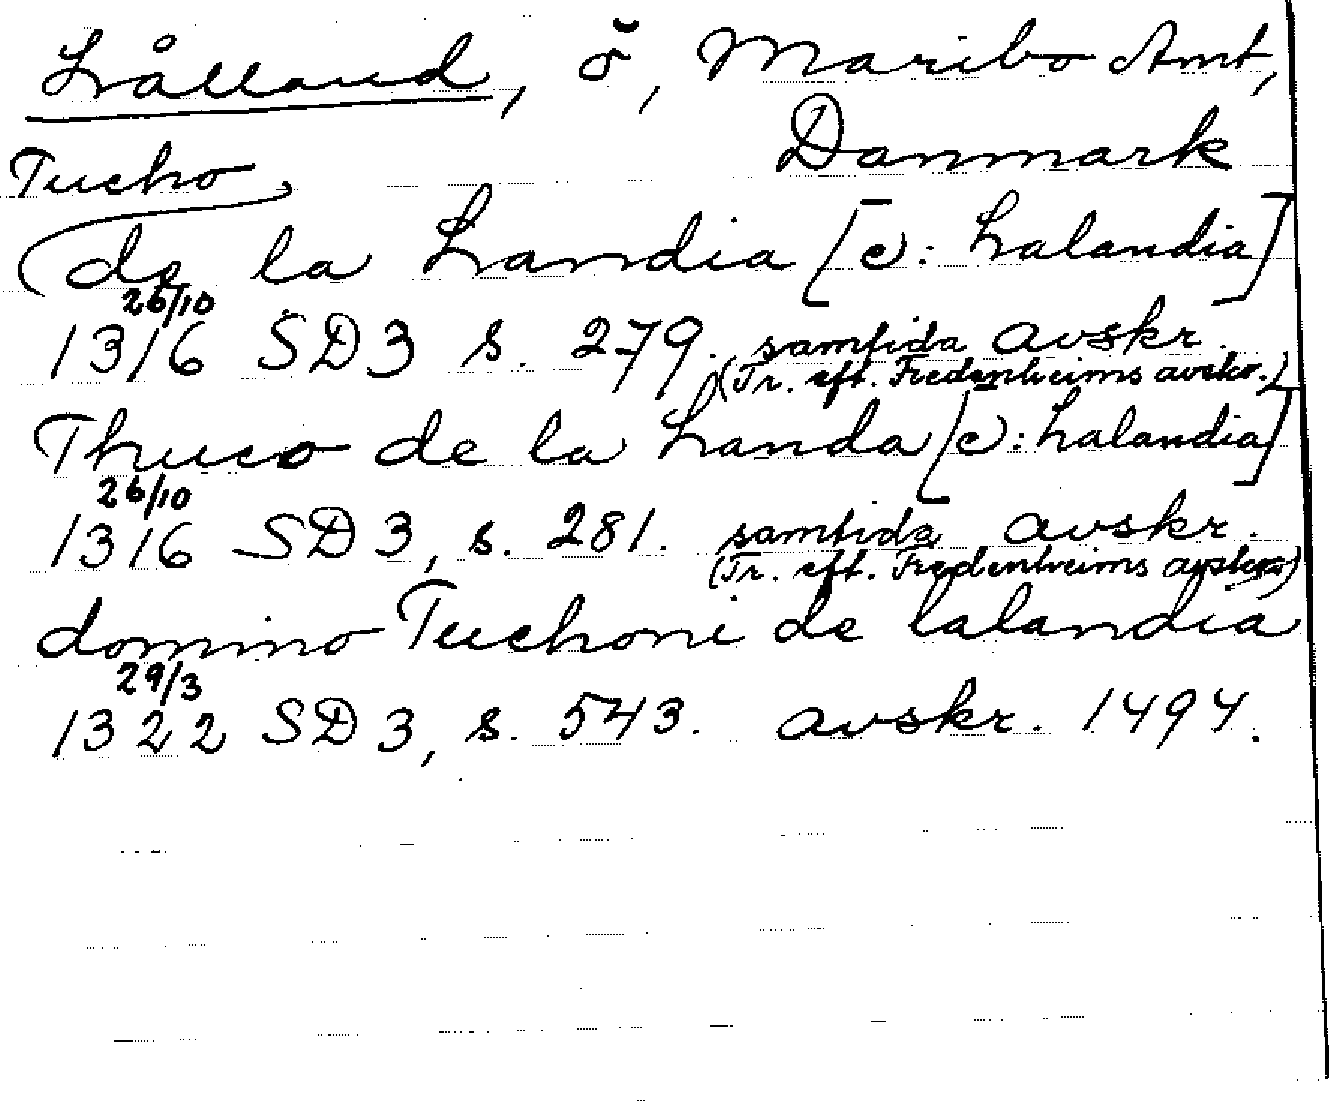 Lålland, ö, Maribo Amt,
Danmark
Tucho
de la Landia [ɔ: Lalandia]
26/10
1316 SD 3 s. 279. samtida avskr.
(Tr. eft. Fredenheims avskr.)
Thuco de la Landa [ɔ: Lalandia]
26/10
1316 SD 3, s. 281. samtida avskr.
(Tr. eft. Fredenheims avskr.)
domino Tuchoni de lalandia
29/3
1322 SD 3, s. 543. avskr. 1494.